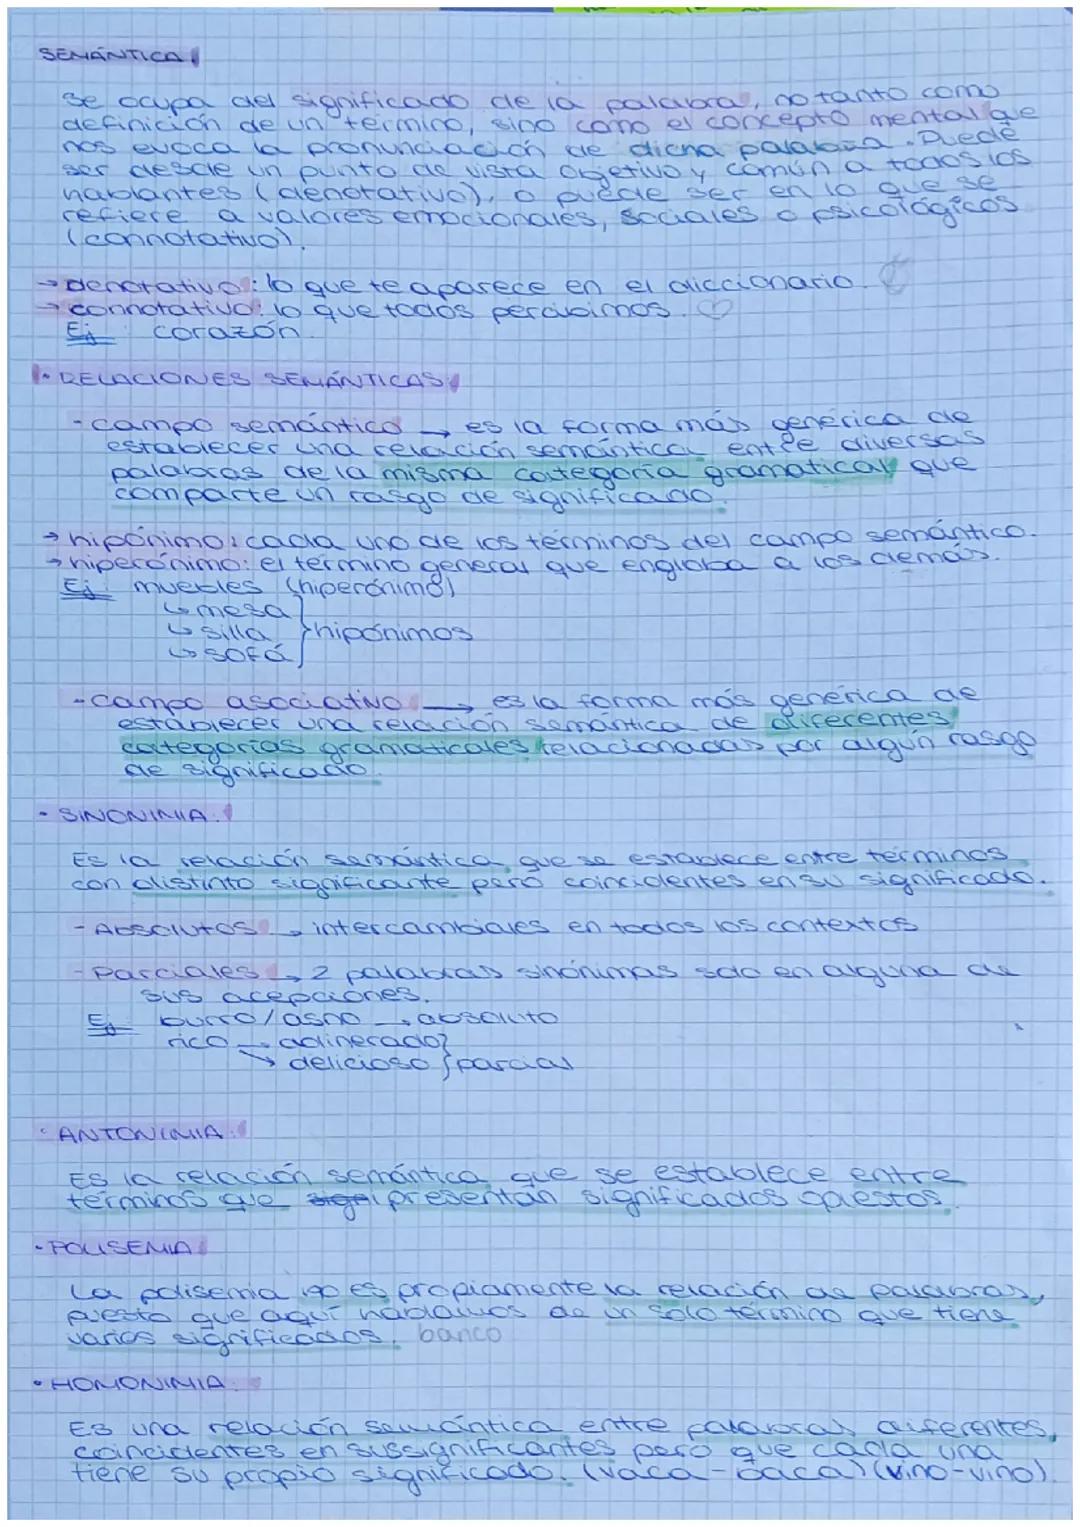 SEMÁNTICA
se ocupa del significado de la palabra, no tanto como
definición de un término, sino como el concepto mental que
nos evoca la pronunciación de dicha palabra. Puede
ser desde un punto de vista objetivo y común a todos los
hablantes (denotativo), o puede ser en lo que se
refiere a valores emocionales, sociales o psicológicos
(connotativo).
→ denotativo: lo que te aparece en el diccionario.
→ connotativo: lo que todos percibimos. ♡
Ej: corazón.
• RELACIONES SEMÁNTICAS
- campo semántico → es la forma más genérica de
establecer una relación semántica entre diversas
palabras de la misma categoría gramatical que
comparte un rasgo de significado.
→ hipónimo: cada uno de los términos del campo semántico.
→ hiperónimo: el término general que engloba a los demás.
Ej muebles (hiperónimo)
↳ mesa
↳ silla } hipónimos
↳ sofá
- campo asociativo → es la forma más genérica de
establecer una relación semántica de diferentes
categorías gramaticales relacionadas por algún rasgo
de significado.
• SINONIMIA.
Es la relación semántica que se establece entre términos
con distinto significante pero coincidentes en su significado.
- Absolutos → intercambiales en todos los contextos
- Parciales → 2 palabras sinónimas solo en alguna de
sus acepciones.
Ej: burro/asno → absoluto
rico → adinerado }
→ delicioso } parcial
• ANTONIMIA.
Es la relación semántica que se establece entre
términos que presentan significados opuestos.
• POLISEMIA
La polisemia no es propiamente la relación de palabras,
puesto que aquí hablamos de un solo término que tiene
varios significados. banco
• HOMONIMIA.
Es una relación semántica entre palabras diferentes,
coincidentes en sus significantes pero que cada una
tiene su propio significado. (vaca-baca) (vino-vino).